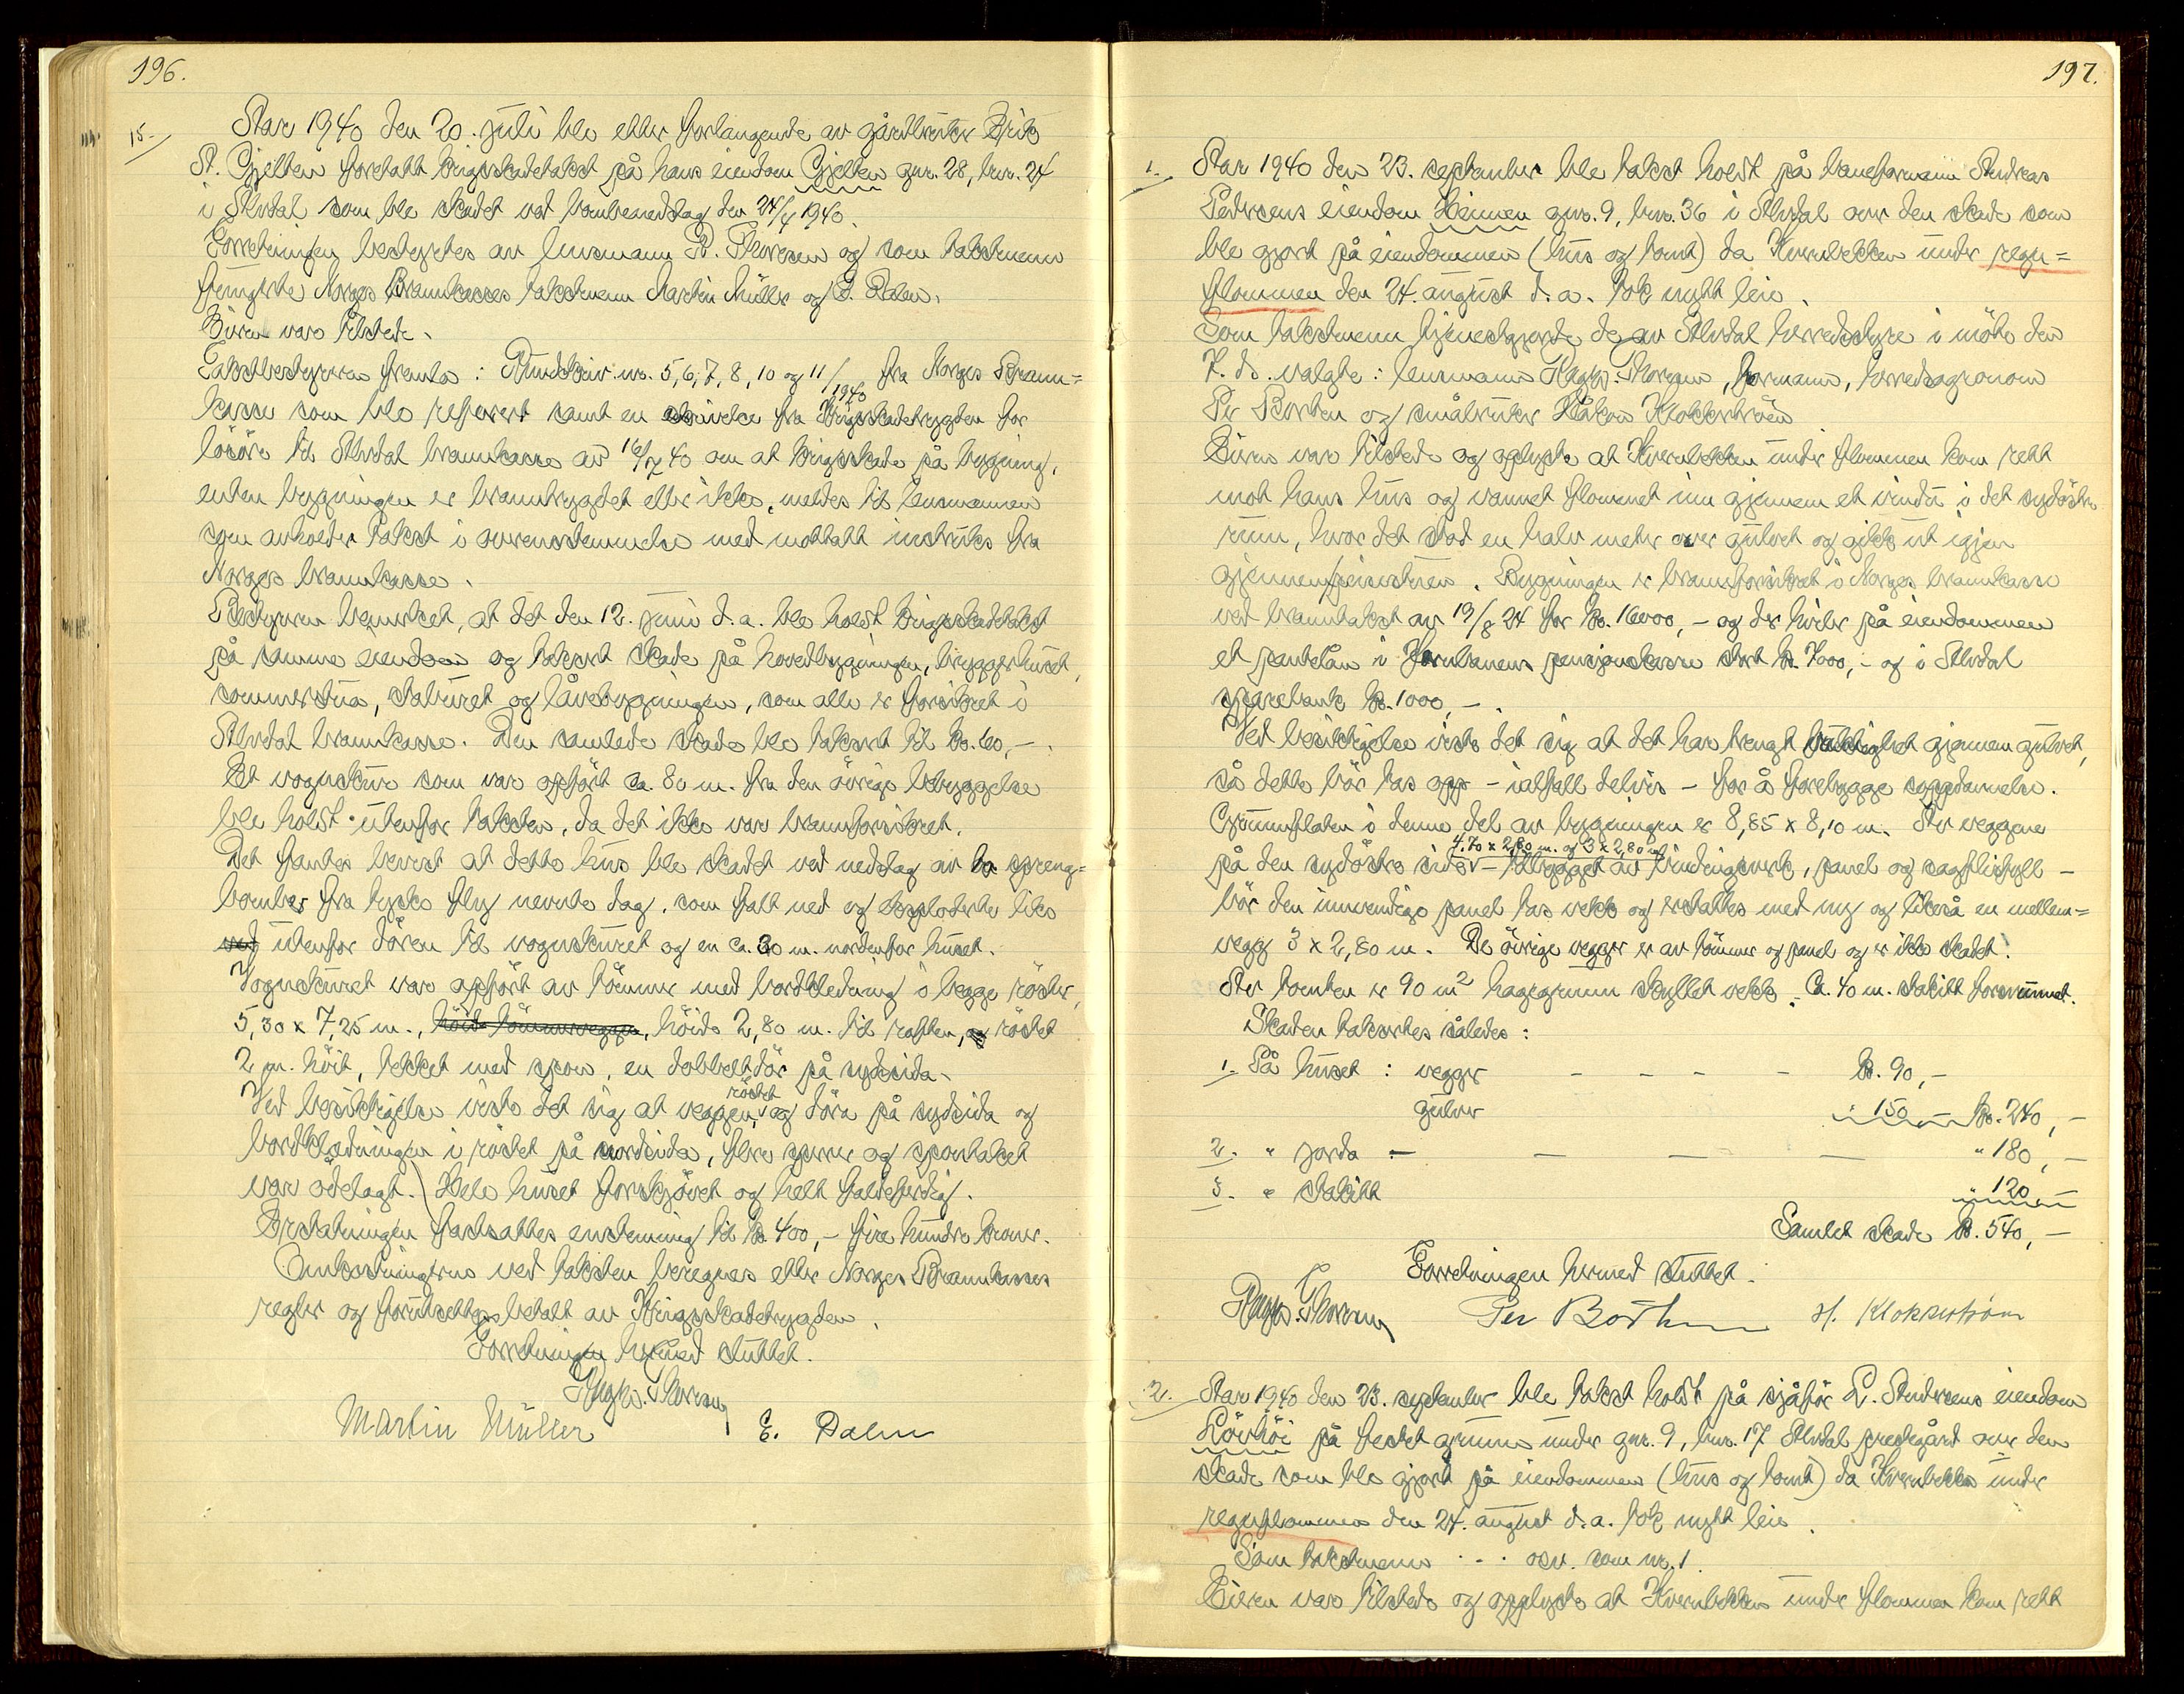 196.
15. År 1940 den 20. juli ble etter forlangende av gårdbruker Erik
St. Gjelten foretatt krigsskadetakst på hans eiendom Gjelten gnr. 28, bnr. 24
i Alvdal som ble skadet ved bombenedslag den 24/4 1940.
Forretningen bestyrtes av lensmann R. Thoresen og som takstmenn
fungerte Norges Brannkasses takstmenn Martin Müller og E. Dalen.
Eieren var tilstede.
Takstbestyreren fremla: Rundskriv nr. 5, 6, 7, 8, 10 og 11/1940 fra Norges Brann=
kasse som ble referert samt en skrivelse fra Krigsskadetrygden for
lösöre til Alvdal brannkasse av 16/7 40 om at krigsskade på bygning,
enten bygningen er branntrygdet eller ikke, meldes til lensmannen
som avholder takst i overensstemmelse med mottatt instruks fra
Norges brannkasse.
Bestyreren bemerket, at det den 12. juni d.a. ble holdt krigsskadetakst
på samme eiendom og taksert skade på hovedbygningen, bryggerhuset,
sommerstua, staburet og låvebygningen, som alle er forsikret i
Alvdal brannkasse. Den samlede skade ble taksert til kr. 60,-.
Et vognskur som var oppfört ca. 80 m. fra den övrige bebyggelse
ble holdt utenfor taksten, da det ikke var brannforsikret.
Det fantes bevist at dette hus ble skadet ved nedslag av to spreng=
bomber fra tyske fly nevnte dag, som falt ned og eksploderte like
ved utenfor dören til vognskuret og en ca. 30 m. nordenfor huset.
Vognskuret var oppfört av tömmer med bordkledning i begge röster,
5,30 x 7,25 m., höide tömmerveggen, höide 2,80 m. til raften, og röstet
2 m. höit, tekket med spon, en dobbeltdör på sydsida.
Ved besiktigelse viste det sig at veggen, röstet og döra på sydsida og
bordkledningen i röstet på nordsida, flere sperrer og spontaket
var ödelagt. Hele huset forskjövet og helt faldeferdig.
Erstatningen fastsattes enstemmig til kr. 400,- fire hundre kroner.
Omkostningene ved taksten beregnes etter Norges Brannkasses
regler og forutsettes betalt av Krigsskadetrygden.
Forretningen hermed sluttet.
Thoresen
Martin Müller E. Dalen
197.
1. År 1940 den 23. september ble takst holdt på baneformann Andreas
Pedersens eiendom Heimen gnr. 9, bnr. 36 i Alvdal over den skade som
ble gjort på eiendommen (hus og tomt) da Kvernbekken under regn=
flommen den 24. august d.a. tok nytt leie.
Som takstmenn tjenestgjorde de av Alvdal herredsstyre i möte den
7. ds. valgte: lensmann Thoresen, formann, herredsagronom
Per Borten og småbruker Håkon Klokkerströen
Eieren var tilstede og oplyste at Kvernbekken under flommen kom rett
mot hans hus og vannet flommet inn gjennem et vindu i det sydöstre
rum, hvor det stod en halv meter over gulvet og gikk ut igjen
gjennem . Bygningen er brannforsikret i Norges brannkasse
ved branntakst av 19/8 24 for kr. 16000,- og der hviler på eiendommen
et pantelån i Jernbanens pensjonskasse stort kr. 7000,- og i Alvdal
sparebank kr. 1000,-.
Ved besiktigelse viste det sig at det har trengt fuktighet gjennem gulvet,
så dette bör tas opp - ialfall delvis - for å forebygge soppdannelse.
Grunnflaten i denne del av bygningen er 8,85 x 8,10 m. Av veggene
4,70 x 2,80 m. og 3 x 2,80 m.
på den sydöstre side - tilbygget av bindingsverk, panel og sagflisfyll -
bör den innvendige panel tas vekk og erstattes med ny og likeså en mellem=
vegg 3 x 2,80 m. De övrige vegger er av tömmer og panel og er ikke skadet.
Av tomten er 90 m² hagegrunn skyllet vekk. Ca. 40 m. stakitt forsvunnet.
Skaden takseres således:
1. På huset: vegger - - - - kr. 90,-
gulver " 150,- kr. 240,-
2. " jorda - - - - " 180,-
3. " stakitt " 120,-
Samlet skade kr. 540,-
Forretningen hermed sluttet.
Thoresen Per Borten H. Klokkerströen
2. År 1940 den 23. september ble takst holdt på sjåför L. Andersens eiendom
Lövhöi på festet grunn under gnr. 9, bnr. 17 Alvdal prestegård over den
skade som ble gjort på eiendommen (hus og tomt) da Kvernbekken under
regnflommen den 24. august d.a. tok nytt leie.
Som takstmenn ... osv. som nr. 1.
Eieren var tilstede og opplyste at Kvernbekken under flommen kom rett